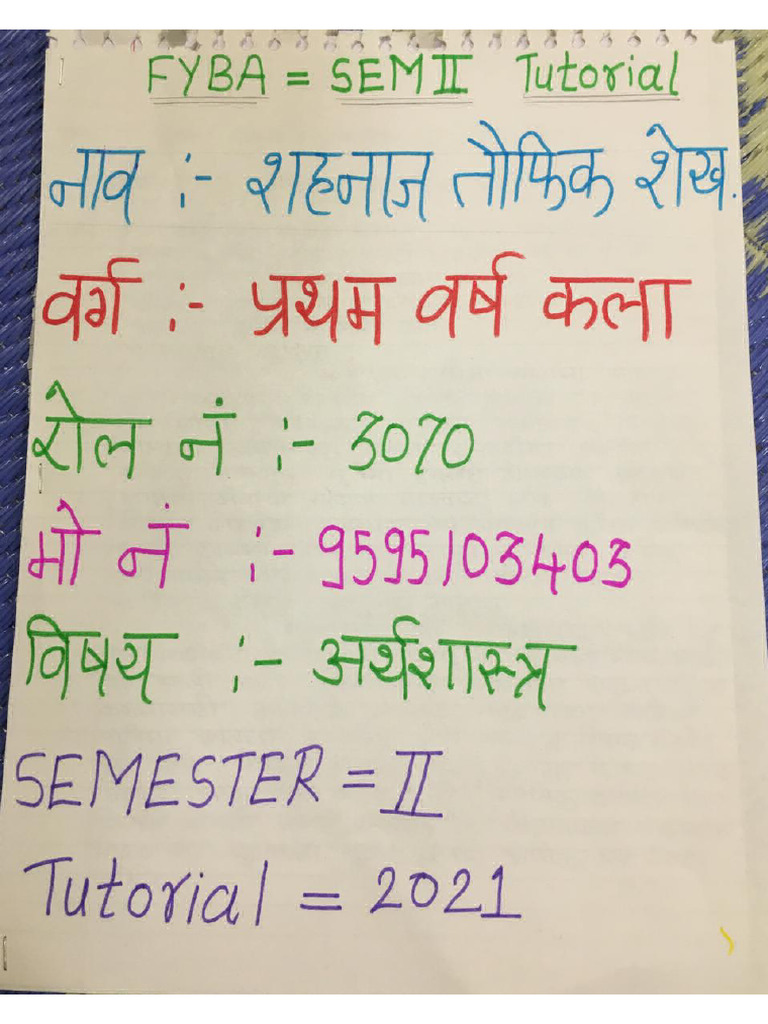 FYBA = SEM II Tutorial
नाव :- शहनाज तौफिक शेख.
वर्ग :- प्रथम वर्ष कला
रोल नं :- 3070
मो नं :- 9595103403
विषय :- अर्थशास्त्र
SEMESTER = II
Tutorial = 2021